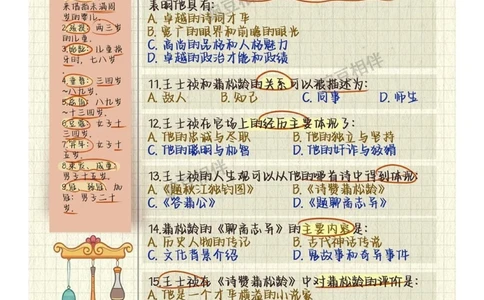 来指指未满周
岁的婴儿。
2.孩提：两三岁
的儿童。
3.始龀：儿童换
牙时，七八岁
4.垂髫：三四岁
~八九岁。
~十三四岁。
6.豆蔻：女子十
三四岁。
7.及笄：女子十
五岁。
8.束发、成童：
男子十五岁。
冠：男子二十
岁。
表明他具有：
A.卓越的诗词才华
B.宽广的眼界和前瞻的眼光
C.高尚的品格和人格魅力
D.卓越的政治才能和政绩
11.王士祯和蒲松龄的关系可以被描述为：
A.敌人 B.知己 C.同事 D.师生
12.王士祯在官场上的经历主要体现了：
A.他的忠诚与尽职 B.他的独立与坚持
C.他的聪明与机智 D.他的奸诈与狡猾
13.王士祯的人生观可以从他的哪首诗中得到体现：
A.《题秋江独钓图》 B.《诗赞蒲松龄》
C.《答蒲公》 D.《题聊斋志异》
14.蒲松龄的《聊斋志异》的主要内容是：
A.历史人物的传记 B.古代神话传说
C.文化背景介绍 D.鬼故事和奇异事件
15.王士祯在《诗赞蒲松龄》中对蒲松龄的评价是：
A.他是一个才华横溢的小说家